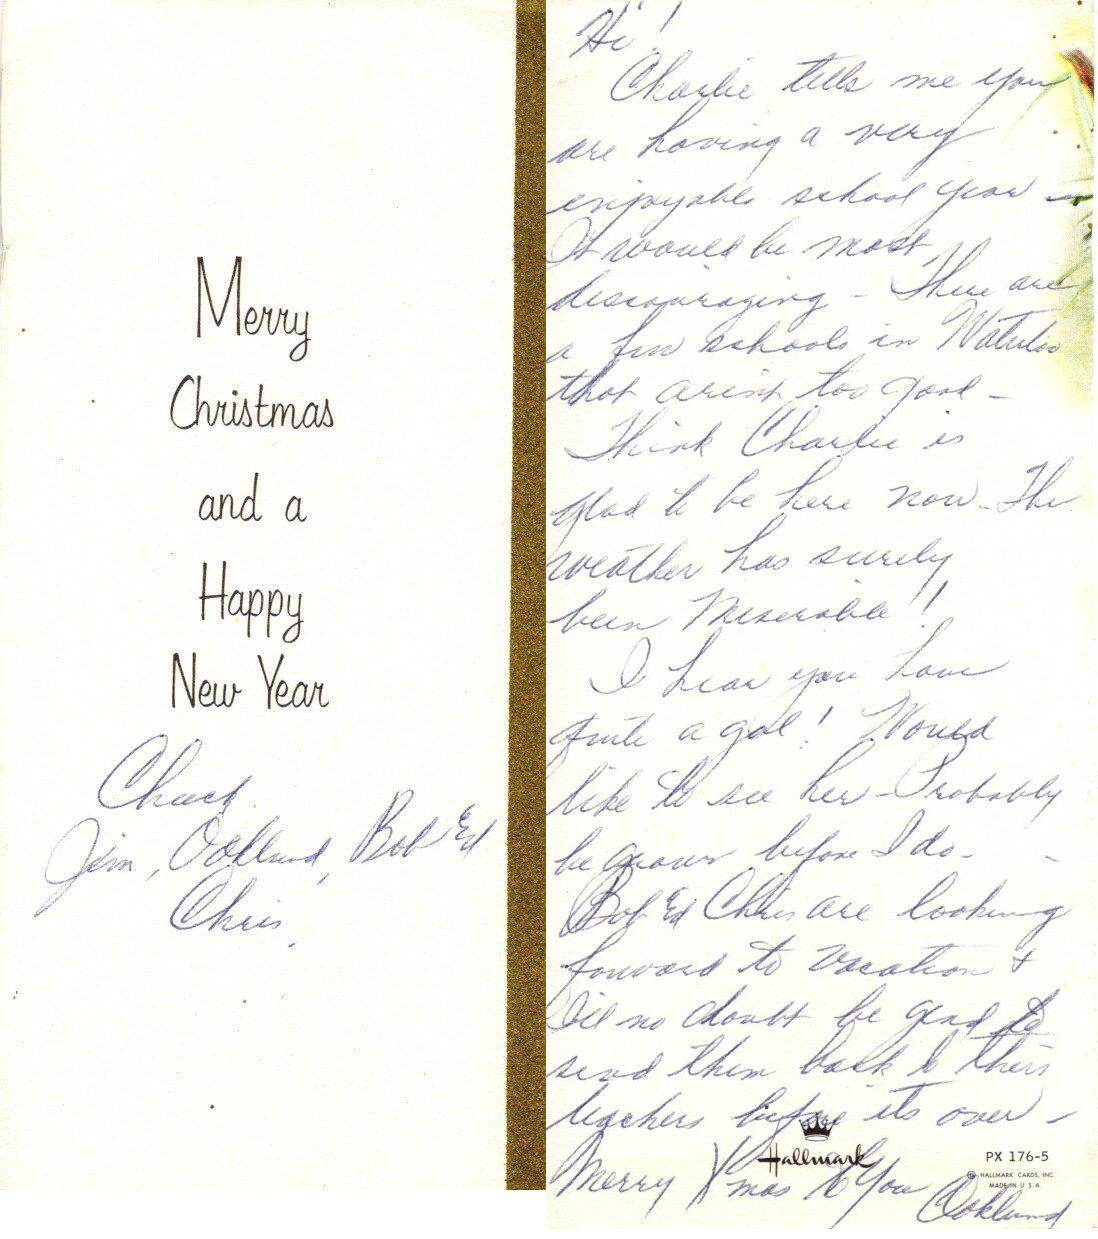 Merry
Christmas
and a
Happy
New Year
Chuck
Jim, Oaklund, Bob Ed
Chris.
Hi!
Charlie tells me you
are having a very
enjoyable school year –
It would be most
discouraging – There are
a few schools in Waterloo
that aren't too good –
Think Charlie is
glad to be here now – The
weather has surely
been Miserable!!
I hear you have
quite a gal! Would
like to see her – Probably
be grown before I do –
Bob Ed Chris are looking
forward to vacation +
I'll no doubt be glad to
send them back to their
teachers before its over –
Merry Xmas to You
Oaklund
Hallmark
PX 176-5
© HALLMARK CARDS, INC.
MADE IN U.S.A.